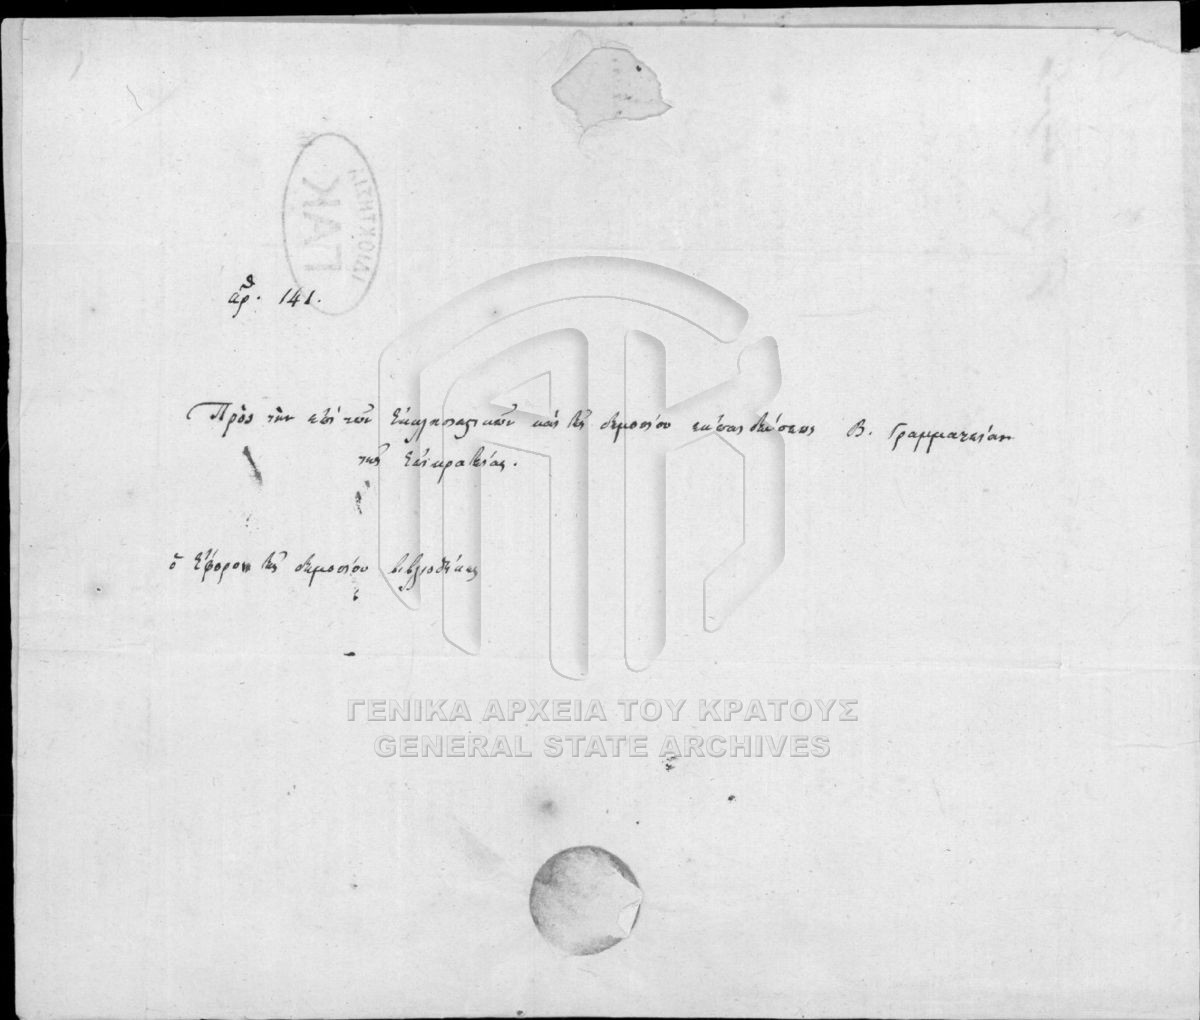 ἀρ.θ 141.
Πρὸς τὴν ἐπὶ τῶν ἐκκλησιαστικῶν καὶ τῆς δημοσίου ἐκπαιδεύσεως Β. Γραμματείαν
τῆς Ἐπικρατείας.
ὁ ἔφορος τῆς δημοσίου βιβλιοθήκης
ΓΑΚ
ΓΕΝΙΚΑ ΑΡΧΕΙΑ ΤΟΥ ΚΡΑΤΟΥΣ
GENERAL STATE ARCHIVES